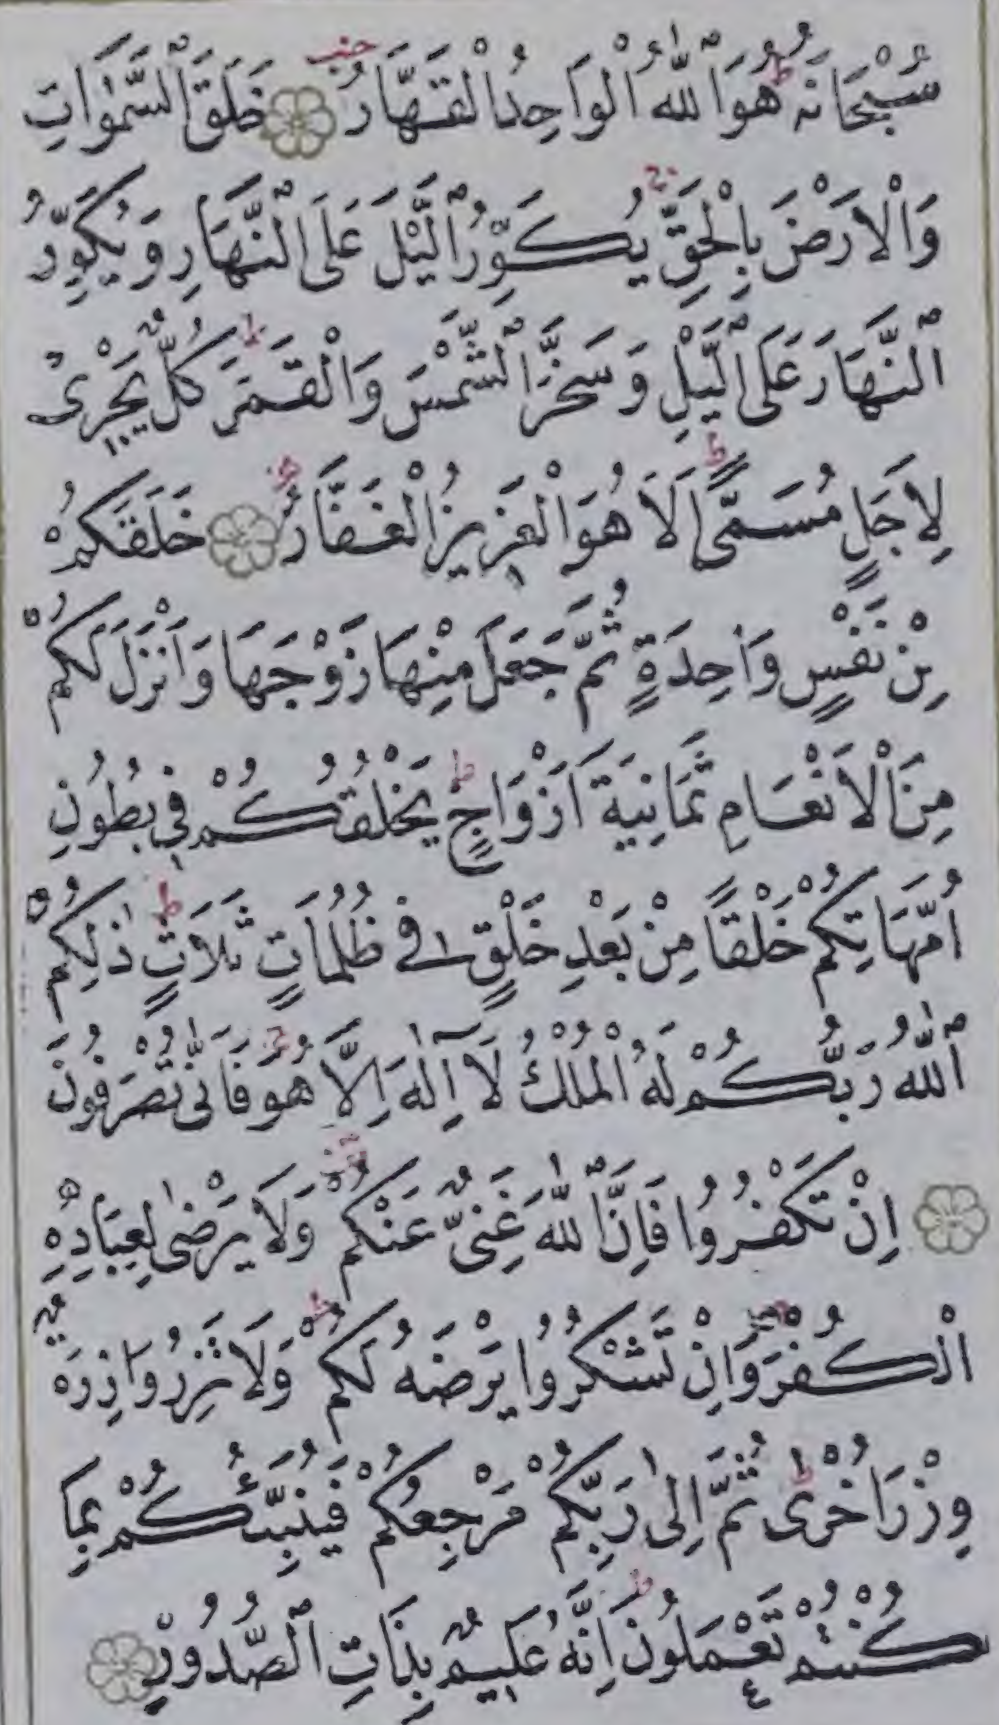 سُبْحَانَهُ هُوَ اللّٰهُ الْوَاحِدُ الْقَهَّارُ خَلَقَ السَّمٰوَاتِ
وَالْاَرْضَ بِالْحَقِّ يُكَوِّرُ الَّيْلَ عَلَى النَّهَارِ وَيُكَوِّرُ
النَّهَارَ عَلَى الَّيْلِ وَسَخَّرَ الشَّمْسَ وَالْقَمَرَ كُلٌّ يَجْرِى
لِاَجَلٍ مُسَمًّى اَلَا هُوَ الْعَزِيزُ الْغَفَّارُ خَلَقَكُمْ
مِنْ نَفْسٍ وَاحِدَةٍ ثُمَّ جَعَلَ مِنْهَا زَوْجَهَا وَاَنْزَلَ لَكُمْ
مِنَ الْاَنْعَامِ ثَمَانِيَةَ اَزْوَاجٍ يَخْلُقُكُمْ فِى بُطُونِ
اُمَّهَاتِكُمْ خَلْقًا مِنْ بَعْدِ خَلْقٍ فِى ظُلُمَاتٍ ثَلَاثٍ ذٰلِكُمُ
اللّٰهُ رَبُّكُمْ لَهُ الْمُلْكُ لَٓا اِلٰهَ اِلَّا هُوَ فَاَنّٰى تُصْرَفُونَ
اِنْ تَكْفُرُوا فَاِنَّ اللّٰهَ غَنِىٌّ عَنْكُمْ وَلَا يَرْضٰى لِعِبَادِهِ
الْكُفْرَ وَاِنْ تَشْكُرُوا يَرْضَهُ لَكُمْ وَلَا تَزِرُ وَازِرَةٌ
وِزْرَ اُخْرٰى ثُمَّ اِلٰى رَبِّكُمْ مَرْجِعُكُمْ فَيُنَبِّئُكُمْ بِمَا
كُنْتُمْ تَعْمَلُونَ اِنَّهُ عَلِيمٌ بِذَاتِ الصُّدُورِ